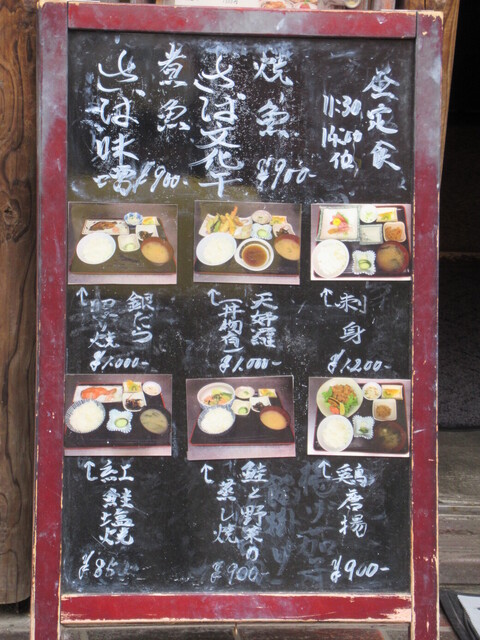 昼定食
11:30
14:00位
焼魚
さば文化干
¥900-
煮魚
さば味噌
¥900-
↑刺身
¥1200-
↑天婦羅
(丼物有)
¥1.000-
↑銀だら
照り焼
¥1.000-
↑鶏唐揚
¥900-
↑鮭と野菜の
蒸し焼
¥900-
↑紅鮭塩焼